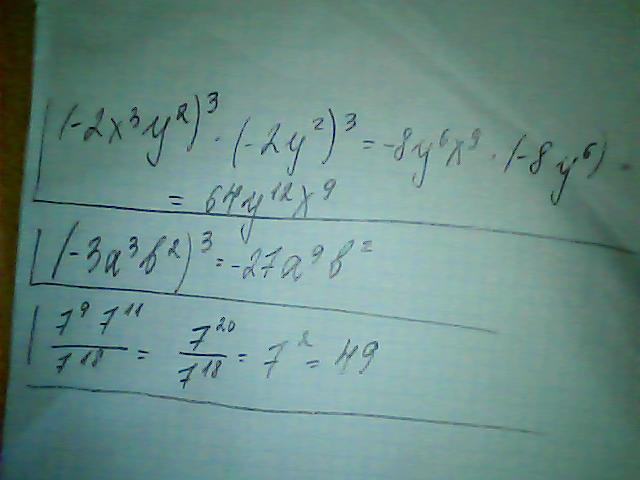 (-2x³y²)³ · (-2y²)³ = -8y⁶x⁹ · (-8y⁶) =
= 64y¹²x⁹
(-3a³b²)³ = -27a⁹b²
7⁹ 7¹¹ / 7¹⁸ = 7²⁰ / 7¹⁸ = 7² = 49